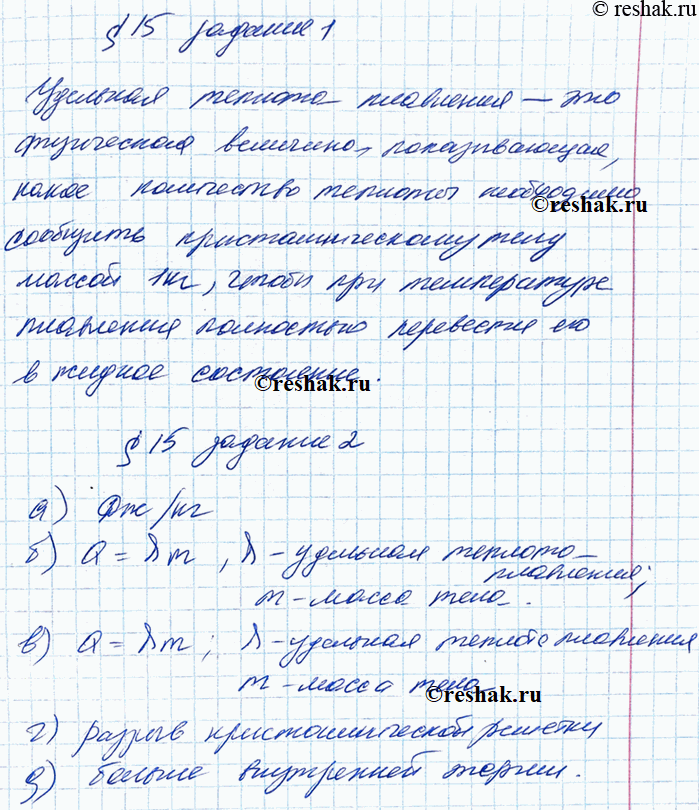 © reshak.ru
§ 15 задание 1
Удельная теплота плавления — это
физическая величина, показывающая,
какое количество теплоты необходимо
©reshak.ru
сообщить кристаллическому телу
массой 1кг, чтобы при температуре
плавления полностью перевести его
в жидкое состояние.
©reshak.ru
§ 15 задание 2
а) Дж/кг
б) Q = λm, λ – удельная теплота
плавления;
m – масса тела.
в) Q = λm; λ – удельная теплота плавления
m – масса тела
©reshak.ru
г) разрыв кристаллической решетки
д) больше внутренней энергии.